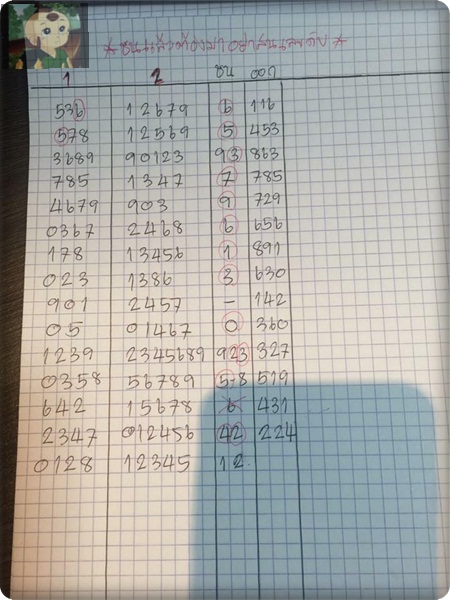 * ชนแล้วต้องมา อย่าสนเลขดับ *
1 2 ชน ออก
536 12679 6 116
578 12569 5 453
3689 90123 93 863
785 1347 7 785
4679 903 9 729
0367 2468 6 656
178 13456 1 891
023 1386 3 630
901 2457 - 142
05 01467 0 360
1239 2345689 923 327
0358 56789 5-8 519
642 15678 6 431
2347 012456 42 224
0128 12345 12.